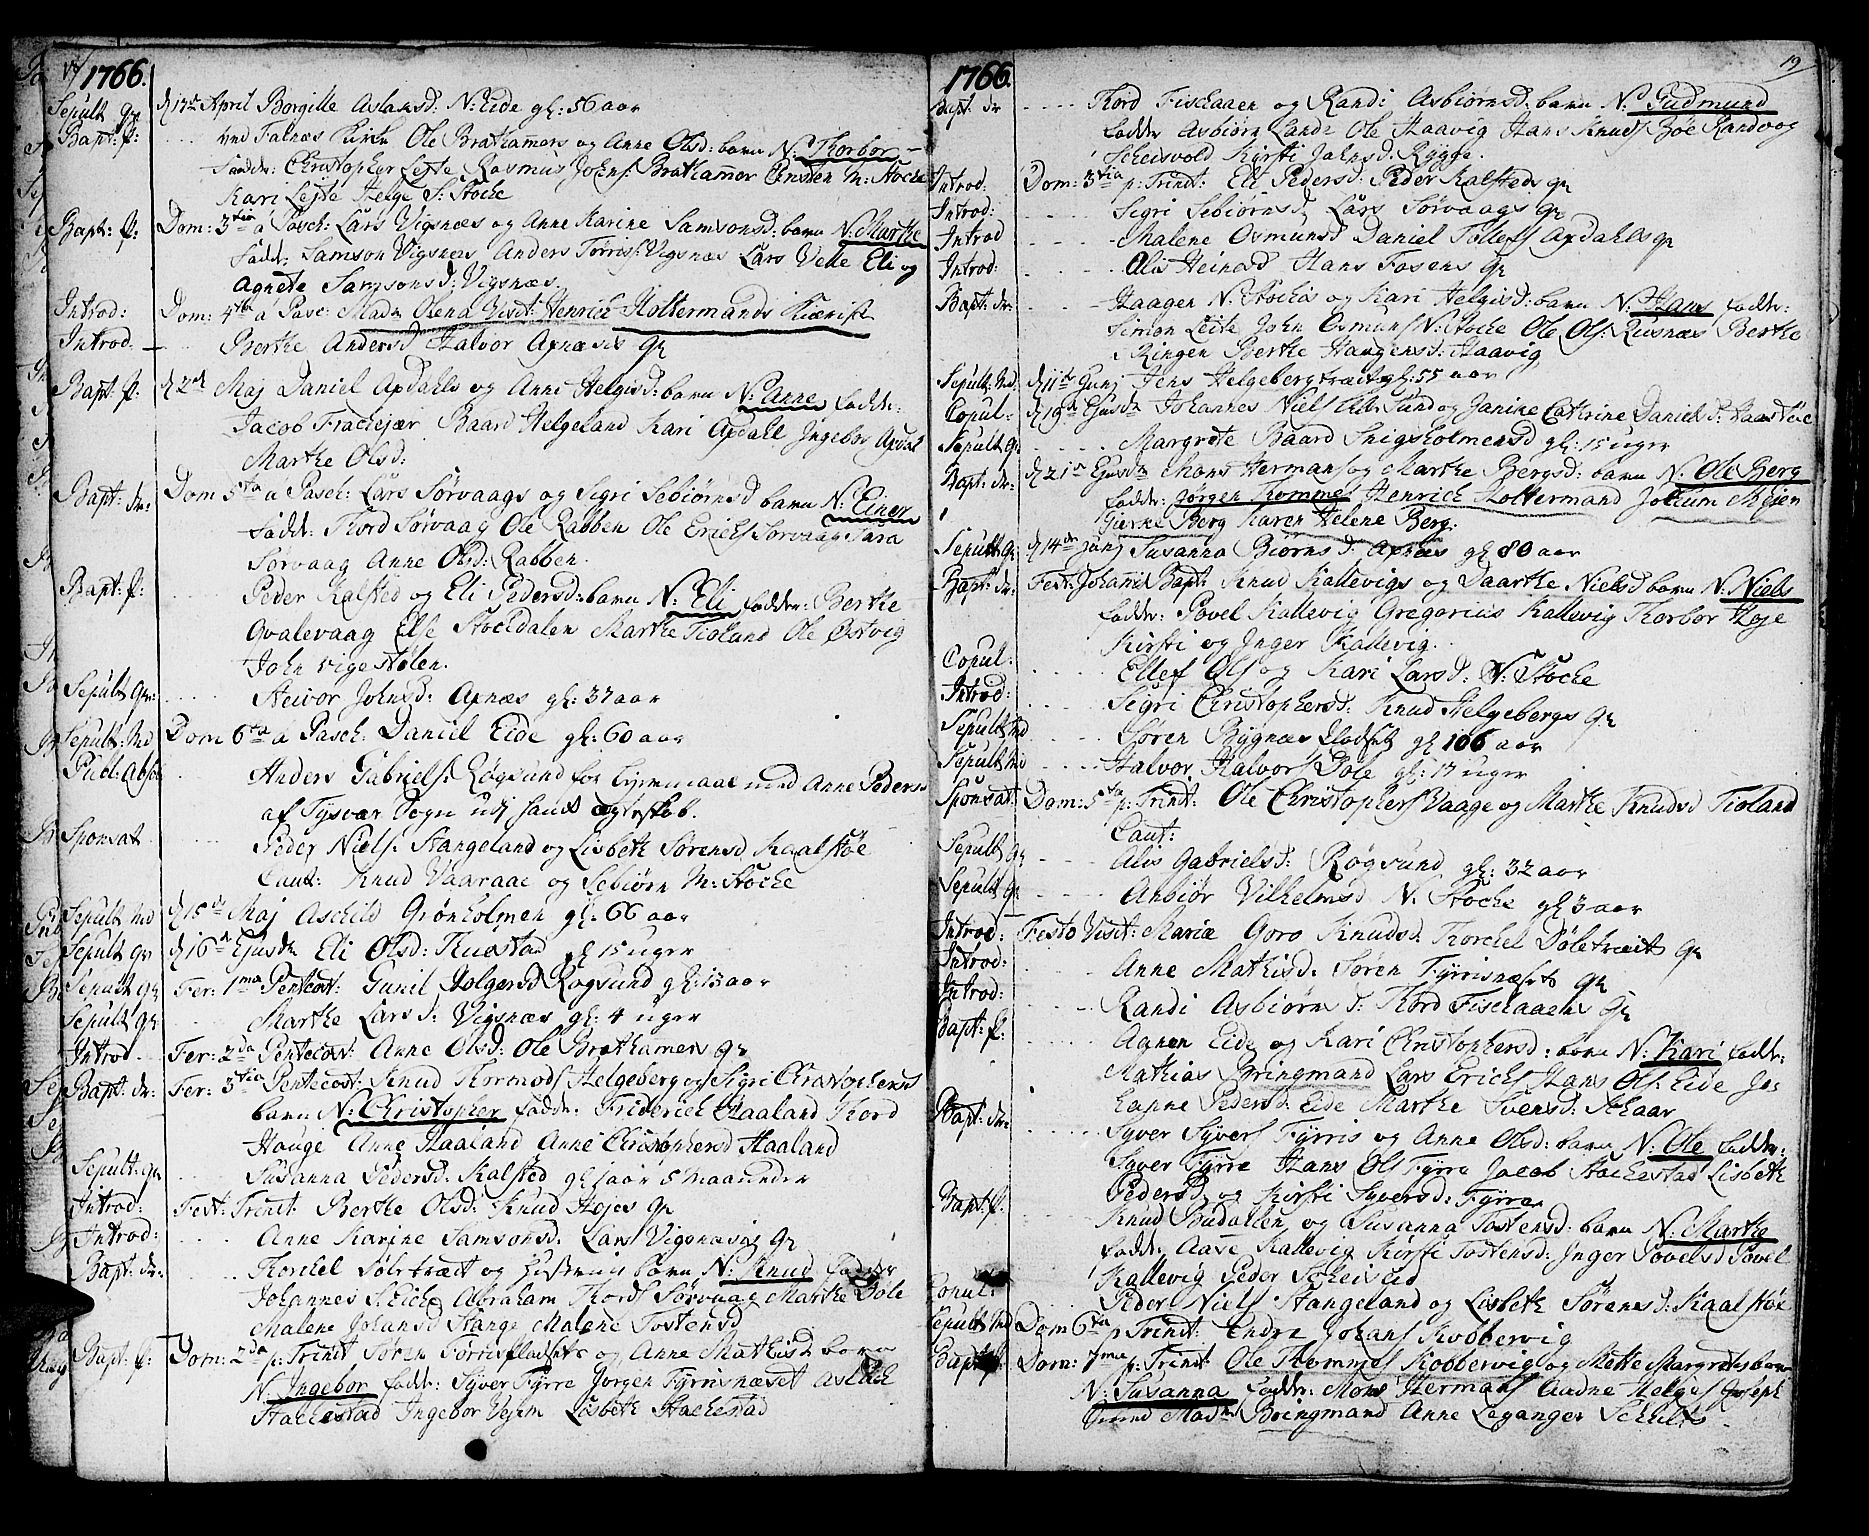 1766.
Sepult Qv d 17de April Borgille Aslaksd. N: Eide gl: 56 aar
Bapt: p: ... ved Falnæs Kirke Ole Bratkamers og Anne Olsd: barn N: Torbor
Fadd: Christopher Leite Rasmus Johns: Bratkamer M: Stocke
Kari Leite Helge S: Stocke
Bapt: p: Dom: 3tia a Pasch: Lars Vigsnæs og Anne Karine Samsonsd: barn N: Marthe
Fadd: Samson Vigsnæs Anders Tørris: Vigsnæs Lars Velle Eli og
Agnete Samsonsd: Vigsnæs.
Introd: Dom: 4ta a Pasc: Madm Olena Henrich Holtermands
Introd: ... Berthe Andersd Halvor Apnæsis Qv
Bapt: p: d 2den Maj Daniel Apdahls og Anne Helgisd: barn N: Anne Fadder:
Jacob Frachejær Baard Helgeland Kari Apdahl Ingebor Apdal
Marthe Olsd:
Bapt: dr: Dom 5ta a Pasch: Lars Sørvaags og Sigri Sebiørnsd barn N: Einer
Fadd: Thord Sørvaag Ole Rabben Ole Erichs Sørvaag Sara
Sørvaag Anne Olsd: Rabben.
Bapt: p: ... Peder Kalsted og Eli Pedersd: barn N: Eli Fadder: Berthe
Qvalevaag Else Stocdalen Marthe Tioland Ole Østvig
John Vigestølen.
Sepult Qv: ... Steivor Johnsd: Apnæs gl: 37 aar
Sepult: Md Dom 6ta a Pasch: Daniel Eide gl: 60 aar
Publ: Absol Anders Gabriels: Røgsund for Leyermaal med Anne Peders:
af Tysvær Sogn udj hans Ægteskab.
Sponsat ... Peder Niels: Stangeland og Lisbeth Sørensd Kaalstøe
Caut: Knud Vaaraae og Sebiørn M: Stocke
Sepult Md d 15de Maj Aschild Grønholmen gl: 66 aar
Sepult Qv d 16de Ejusdm Eli Olsd: gl 15 uger
Sepult Qv Fer: 1ma Pentecost: Gunil Holgersd Røgsund gl: 13 aar
Sepult Qv ... Marthe Larsd: Vigsnæs gl: 4 uger
Introd. Fer: 2da Pentecost: Anne Olsd: Ole Bratkamers Qv
Bapt: dr: Fer: 3tia Pentecost: Knud Thormods Helgeberg og Sigri Christophersd
barn N: Christopher Fadd: Friderich Haaland Thord
Hauge Anne Haaland Anne Christophersd Haaland
Sepult: Qv Susanna Pedersd: Kalsted gl 1 aar 5 maaneder
Introd: Fest: Trinit Berthe Olsd: Knud Højes Qv
Introd: ... Anne Karine Samsonsd: Lars Vigsnæsis Qv
Bapt: dr: ... Torchel Døletræet og Hustrues barn N: Knud Fadder
Johannes S: Eiche Abraham Thords Sørvaag Marthe Døle
Malene Johansd Stange Malene Tostensd
Bapt: p: Dom: 2da p: Trinit Søren og Anne Mathisd barn
N. Ingebor Fadd: Syver Fyrre Jørgen Fyrrisnæset Aslach
Stackestad Ingebor Lisbeth Stackestad
1766. 19
Bapt. dr ... Thord Fiscaaen og Randi Asbiørnsd. barn N: Gudmund
Fadd: Asbiørn Lande Ole Haavig Hans Knuds Bøe Randvog
Scheisvold Kirsti Johnsd: Rygge.
Introd: Dom: 3tia p: Trinit: Eli Pedersd: Peder Kalsteds Qv
Introd: ... Sigri Sebiørnsd Lars Sørvaags Qv
Introd ... Malene Osmunsd Daniel Tollefs Apdahls Qv
Introd: ... Alis Heinesd Hans Fosens Qv
Bapt: dr: ... Haagen N: Stockis og Kari Helgisd: barn N: Hans Fadder:
Simon Leite John Osmuns N: Stocke Ole Ols: Reisnæs Berthe
Ringen Berthe Haugensd: Haavig
Sepult: Md d 11te Junj Jens Helgebergtræet gl: 55 aar
Copul: d 19de Ejusdm Johannes Niels og Janike Cathrine Daniels D:
Sepult Qv ... Margrete Baard Snigsholmensd gl: 15 uger
Bapt: dr: d 21de Ejusdm Mons Hermans og Marthe Bergsd: barn N. Ole Berg
Fadd: Jørgen Thomme Henrich Holtermand Jochum Meien
Berg Karen Helene Berg.
Sepult Qv d 14de Junj Susanna Biørnsd: Apnæs gl 80 aar
Bapt: dr: Fest: Johannis Bapt: Knud Kallevigs og Daarthe Nielsd barn N: Niels
Fadd: Povel Kallevig Gregorius Kallevig Torbor Høje
Kirsti og Inger Kallevig.
Copul: ... Ellef Ols og Kari Larsd: N: Stocke
Introd: ... Sigri Christophersd: Knud Helgebergs Qv
Sepult Md ... Søren Bygnæs gl 106 aar
Sepult Md ... Halvor Halvors Døle gl: 17 uger
Sponsat: Dom: 5ta p: Trinit: Ole Christophers Vaage og Marthe Knudsd Tioland
Caut:
Sepult Qv ... Alis Gabrielsd: Røgsund gl: 32 aar
Sepult Qv ... Anbiør Vilhelmsd N. Stocke gl 3 aar
Introd: Festo Visit: Mariæ Goro Knudsd: Torchel Døletræets Qv
Introd: ... Anne Mathisd: Søren Fyrrisnæsets Qv
Introd: ... Randi Asbiørnsd: Thord Fiscaaens Qv
Bapt: p: ... Agnen Eide og Kari Christophersd: barn N: Kari Fadder:
Mathias Bringmand Lars Erichs Hans Ols: Eide Jo-
hanne Pedersd: Eide Marthe Svensd: Schaar
Bapt: dr: ... Syver Syvers Fyrris og Anne Olsd: barn N: Ole Fadder:
Syver Fyrre Hans Ols Fyrre Jacob Stackestad Lisbeth
Pedersd og Kirsti Syversd: Fyrre
Bapt: p: Knud Budallen og Susanna Tostensd: barn N: Marthe
Fadd: Aase Kallevig Kirsti Tostensd: Inger Povelsd Povel
Kallevig Peder Scheisud
Copul: ... Peder Niels Stangeland og Lisbeth Sørensd: Kaalstøe
Sepult Md Dom 6ta p Trinit: Endre Johans Kobbervig
Bapt: p: Dom: 7ma p: Trinit: Ole Thommes Kobbervig og Mette Margretes barn
N: Susanna Fadd: Mons Hermans Audne Helges Joseph
Madm Bringmand Anne Leganger Schults